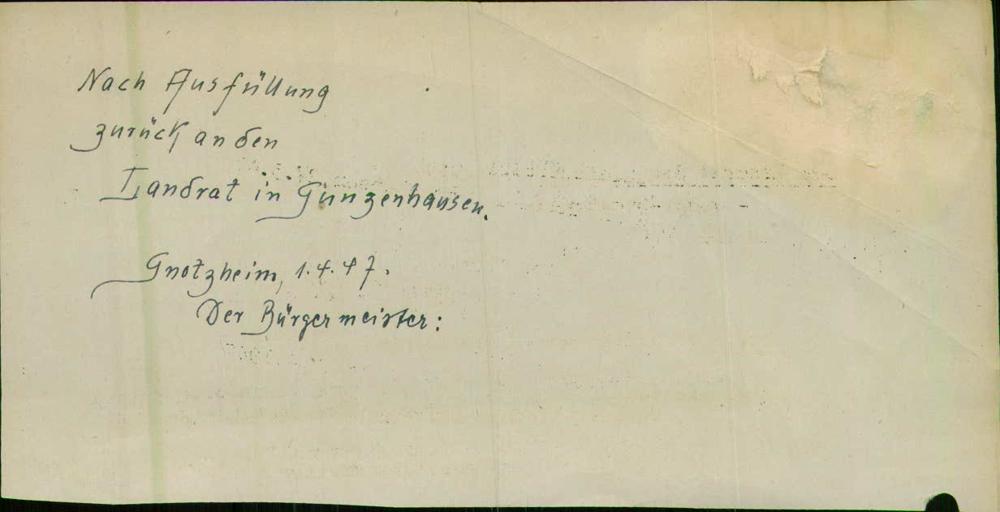 Nach Ausfüllung
zurück an den
Landrat in Gunzenhausen.
Gnotzheim, 1.4.47.
Der Bürgermeister: